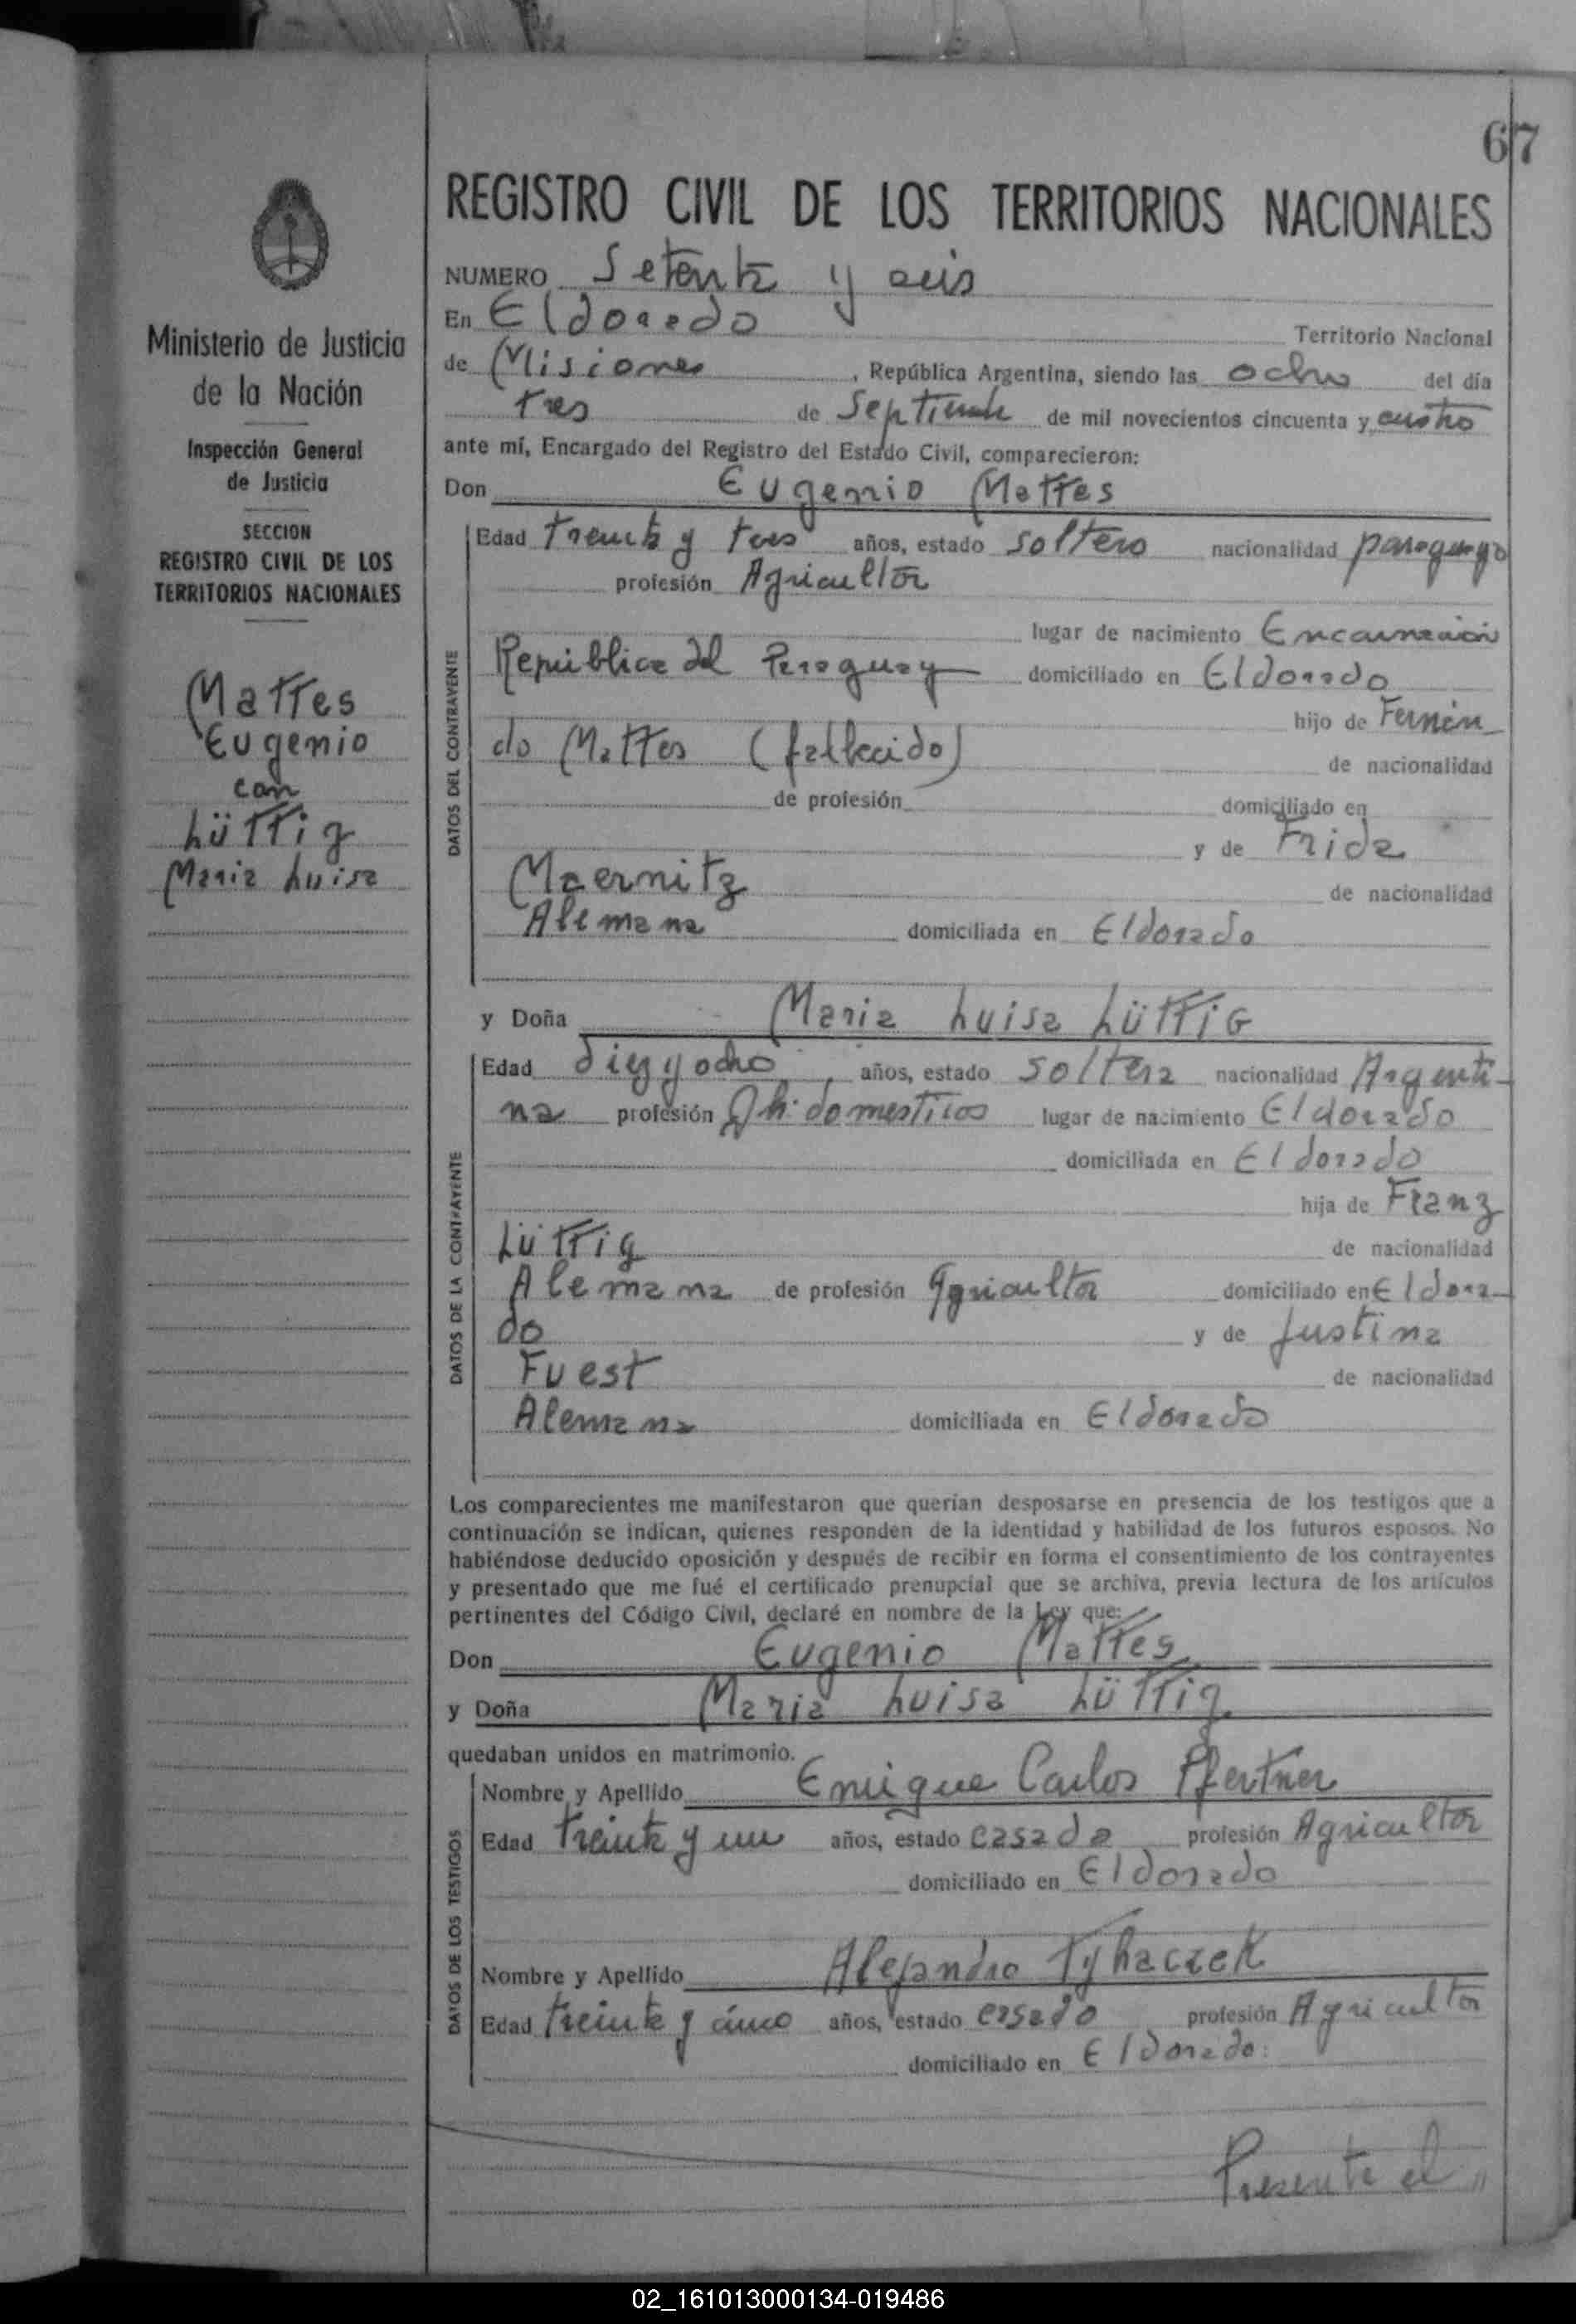 67
REGISTRO CIVIL DE LOS TERRITORIOS NACIONALES
NUMERO Setenta y seis
En Eldorado Territorio Nacional
de Misiones, República Argentina, siendo las ocho del día
tres de Septiembre de mil novecientos cincuenta y cuatro
ante mí, Encargado del Registro del Estado Civil, comparecieron:
Don Eugenio Mattes
Edad treinta y tres años, estado soltero nacionalidad paraguayo
profesión Agricultor
lugar de nacimiento Encarnación
República del Paraguay domiciliado en Eldorado
hijo de Fernan
do Mattes (fallecido)
de nacionalidad
de profesión domiciliado en
y de Frida
Maernitz
de nacionalidad
Alemana domiciliada en Eldorado
y Doña Maria Luisa LüttiG
Edad diez y ocho años, estado soltera nacionalidad Argenti-
na profesión Qh. domesticos lugar de nacimiento Eldorado
domiciliada en Eldorado
hija de Franz
Lüttig
de nacionalidad
Alemana de profesión Agricultor domiciliado en Eldora-
do y de Justina
Fuest
de nacionalidad
Alemana domiciliada en Eldorado
Los comparecientes me manifestaron que querían desposarse en presencia de los testigos que a
continuación se indican, quienes responden de la identidad y habilidad de los futuros esposos. No
habiéndose deducido oposición y después de recibir en forma el consentimiento de los contrayentes
y presentado que me fué el certificado prenupcial que se archiva, previa lectura de los artículos
pertinentes del Código Civil, declaré en nombre de la Ley que:
Don Eugenio Mattes
y Doña Maria Luisa Lüttig
quedaban unidos en matrimonio.
Nombre y Apellido Enrique Carlos Pfertner
Edad treinta y un años, estado casado profesión Agricultor
domiciliado en Eldorado
Nombre y Apellido Alejandro Tyhaczek
Edad treinta y cinco años, estado casado profesión Agricultor
domiciliado en Eldorado.
Presente el "
DATOS DEL CONTRAYENTE
DATOS DE LA CONTRAYENTE
DATOS DE LOS TESTIGOS
Ministerio de Justicia
de la Nación
Inspección General
de Justicia
SECCION
REGISTRO CIVIL DE LOS
TERRITORIOS NACIONALES
Mattes
Eugenio
con
Lüttig
Maria Luisa
02_161013000134-019486